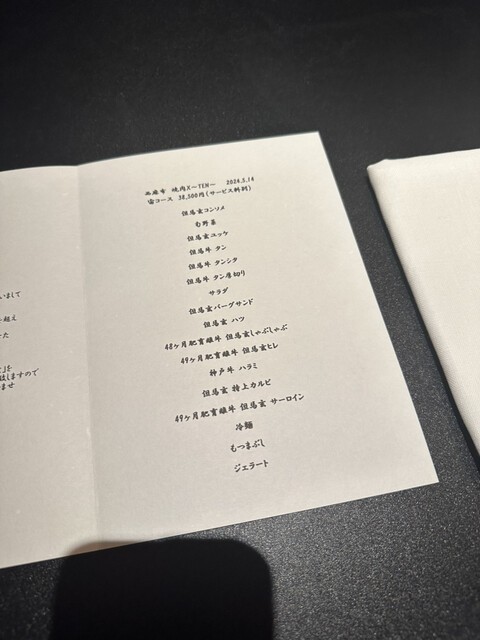 いまして
超え
た
」を
致しますので
ませ
西麻布 焼肉X〜TEN〜 2024.5.14
宙コース 38,500円(サービス料別)
但馬玄コンソメ
旬野菜
但馬玄ユッケ
但馬牛 タン
但馬牛 タンシタ
但馬牛 タン厚切り
サラダ
但馬玄バーグサンド
但馬玄 ハツ
48ヶ月肥育雌牛 但馬玄しゃぶしゃぶ
49ヶ月肥育雌牛 但馬玄ヒレ
神戸牛 ハラミ
但馬玄 特上カルビ
49ヶ月肥育雌牛 但馬玄 サーロイン
冷麺
もつまぶし
ジェラート